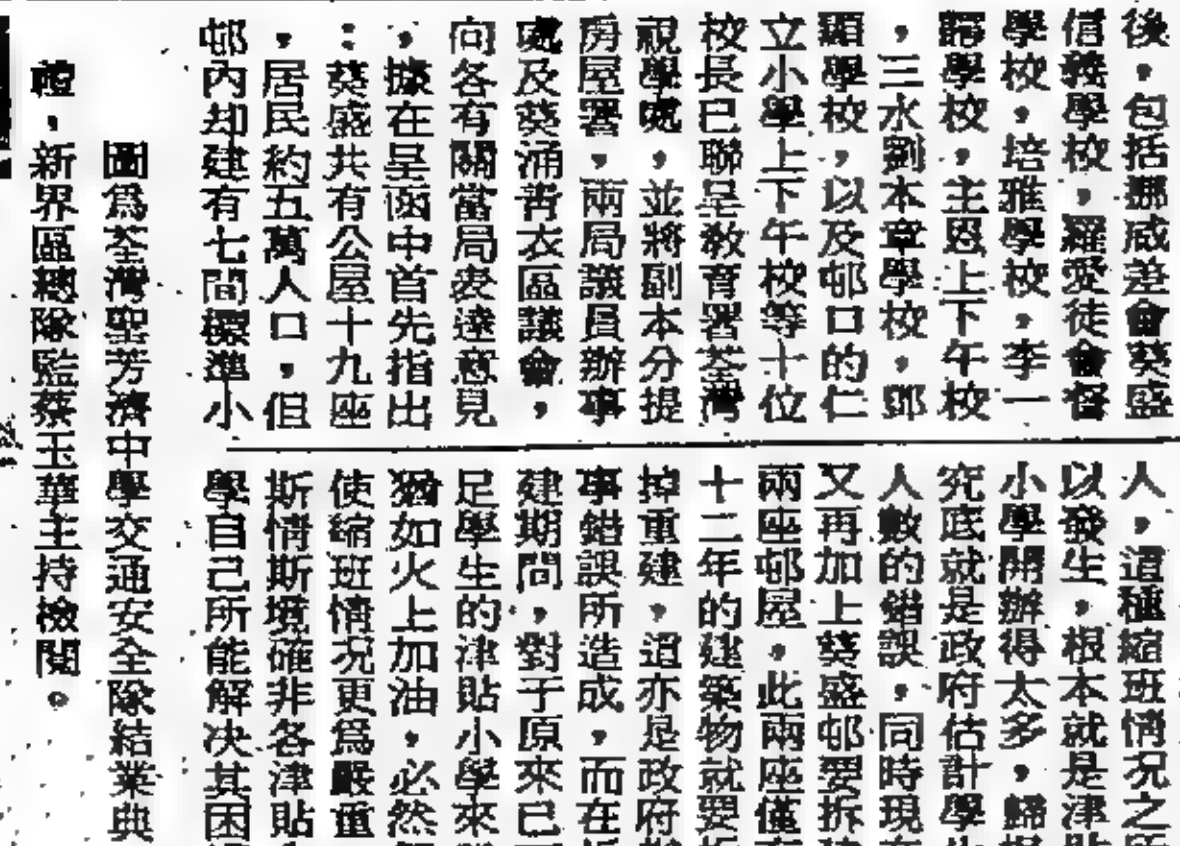 後，包括挪威差會葵盛
信義學校，羅愛徒會督
學校，培雅學校，李一
諤學校，主恩上下午校
，三水劉本章學校，鄧
顯學校，以及邨口的仁
立小學上下午校等十位
校長已聯呈教育署荃灣
視學處，並將副本分提
房屋署，兩局議員辦事
處及葵涌青衣區議會，
向各有關當局表達意見
，據在呈函中首先指出
：葵盛共有公屋十九座
，居民約五萬人口，但
邨內却建有七間標準小
人，這種縮班情況之所
以發生，根本就是津貼
小學開辦得太多，歸根
究底就是政府估計學生
人數的錯誤，同時現在
又再加上葵盛邨要拆建
兩座邨屋，此兩座僅有
十二年的建築物就要拆
掉重建，這亦是政府
事錯誤所造成，而在拆
建期間，對于原來已
足學生的津貼小學來
猶如火上加油，必然
使縮班情況更為嚴重
斯情斯境確非各津貼
學自己所能解决其困
圖爲荃灣聖芳濟中學交通安全隊結業典
禮，新界區總隊監蔡玉華主持檢閱。